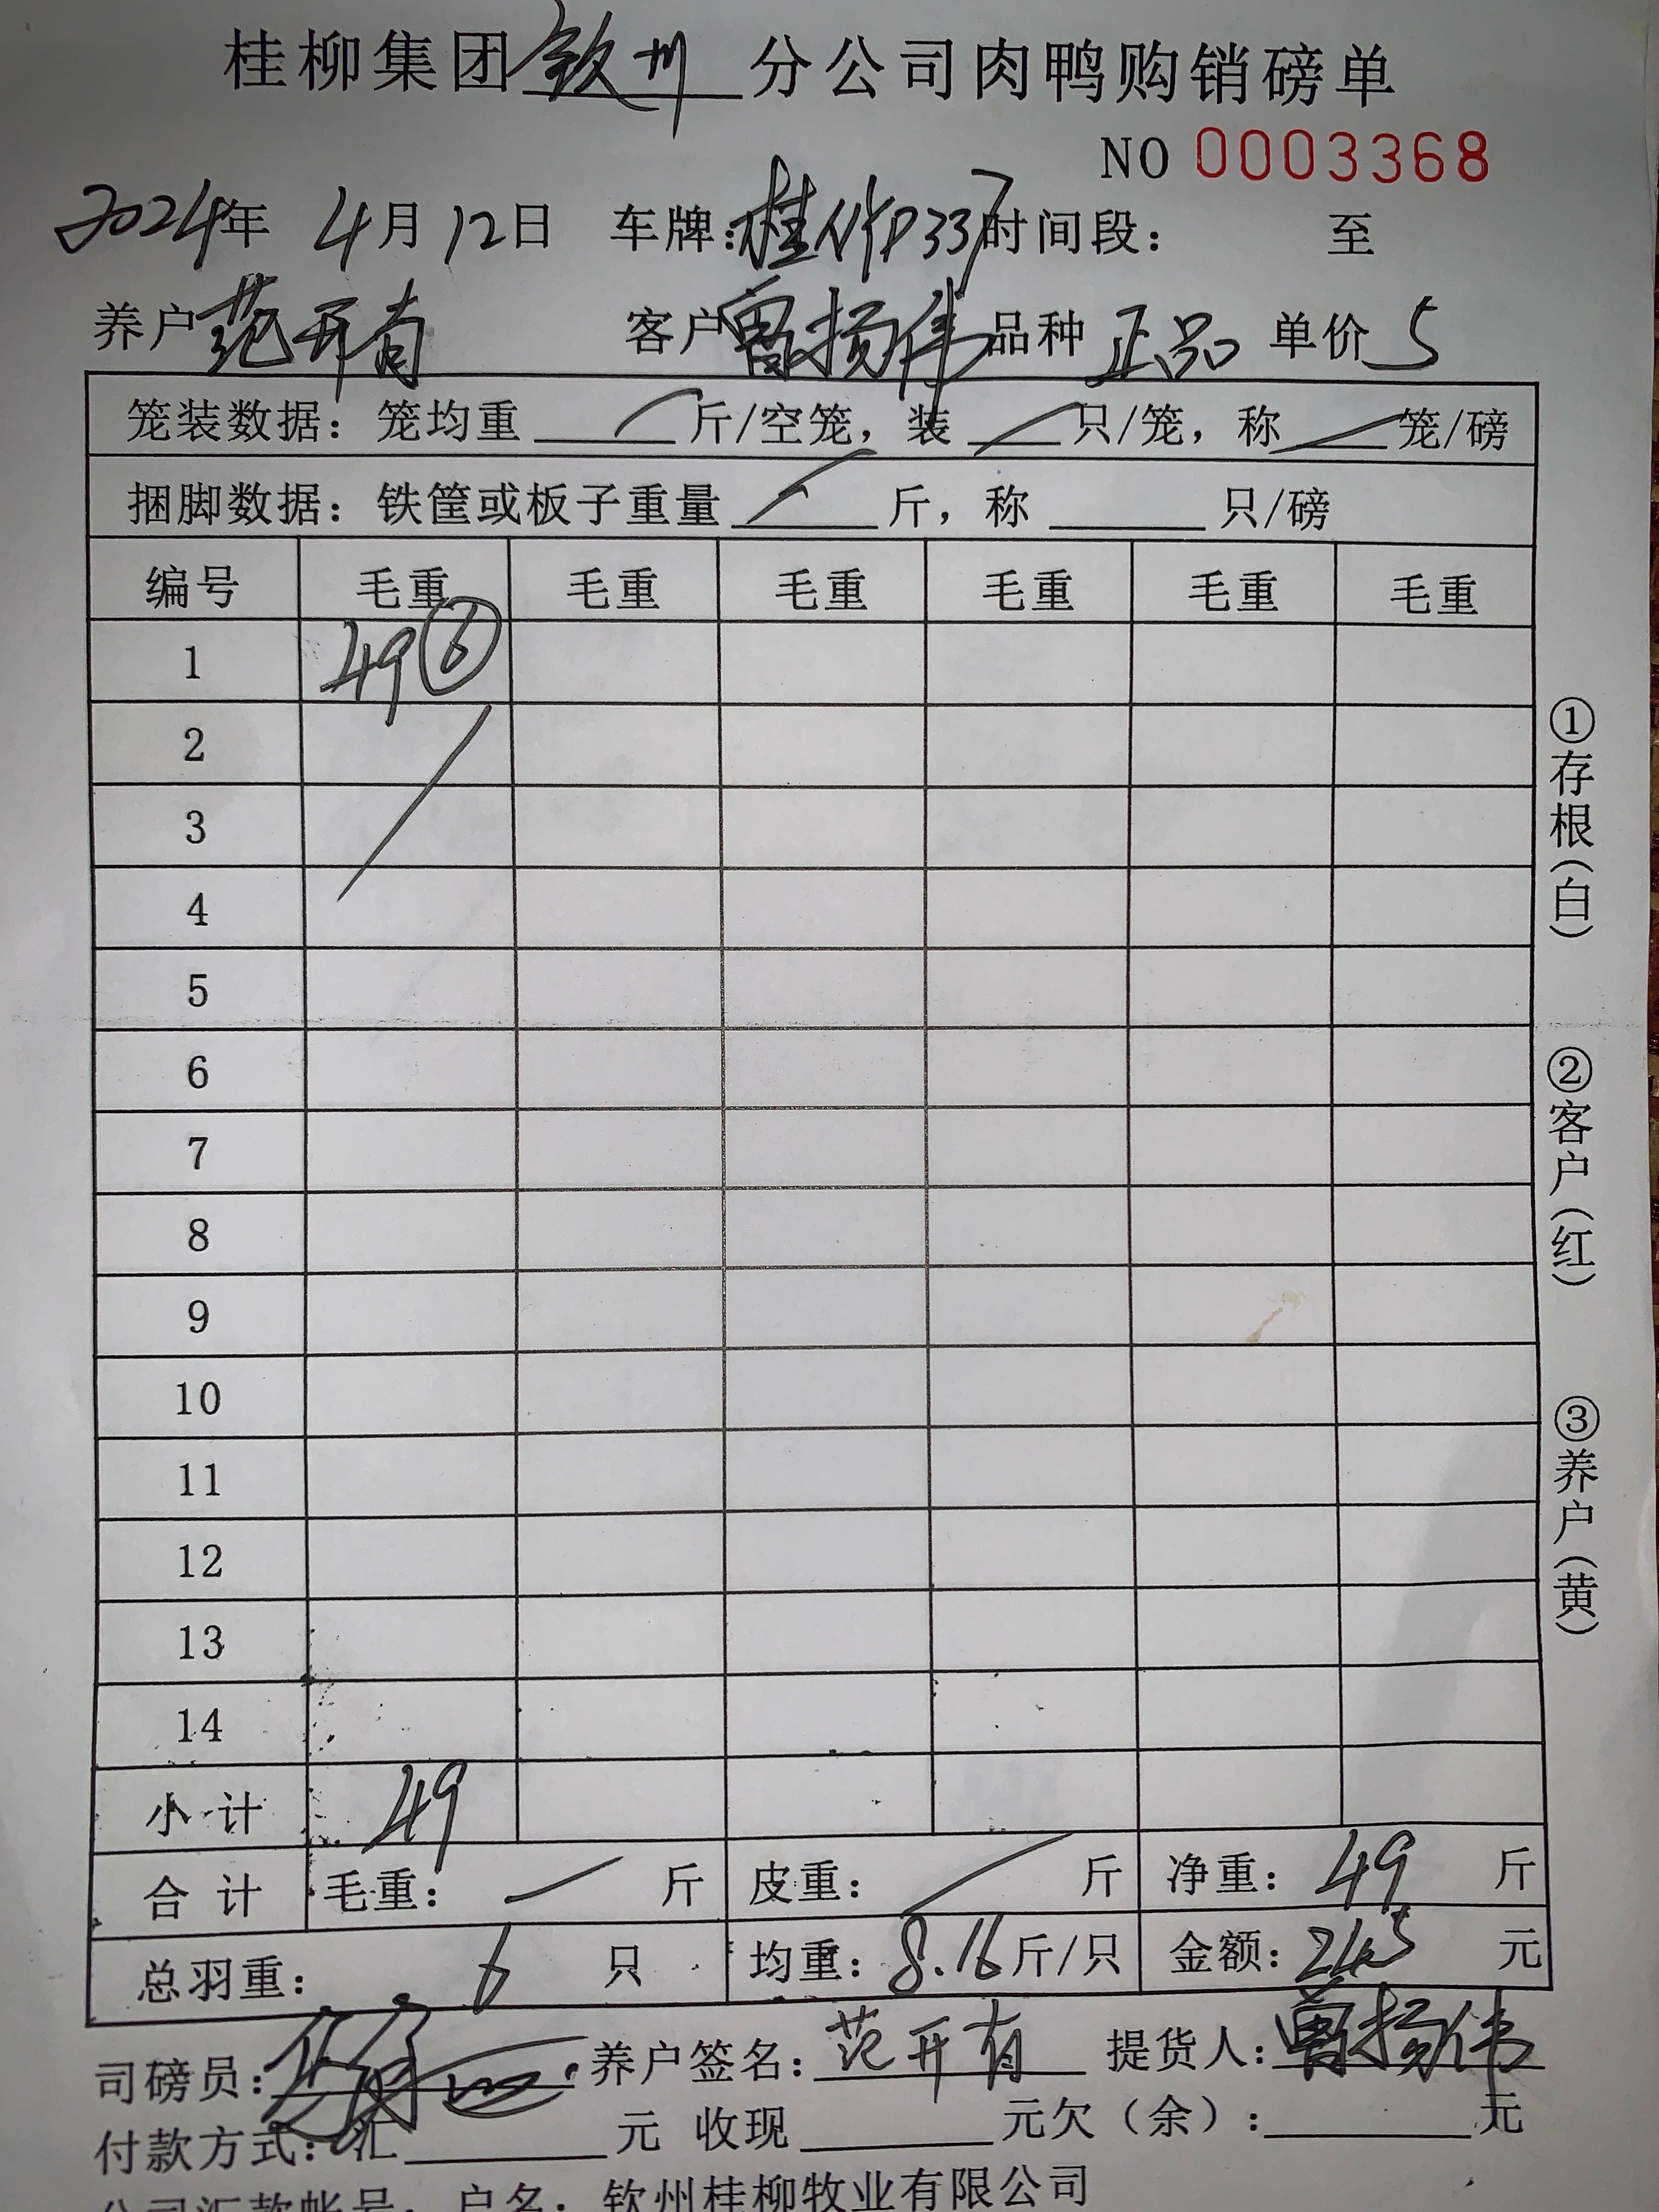 桂柳集团钦州分公司肉鸭购销磅单
NO 0003368
2024年 4月12日 车牌: 时间段: 至
养户范开有 客户曾扬伟 品种 正品 单价 5
笼装数据: 笼均重 斤/空笼, 装 只/笼, 称 笼/磅
捆脚数据: 铁筐或板子重量 斤, 称 只/磅
编号 毛重 毛重 毛重 毛重 毛重 毛重
1 49 ⑥
2
3
4
5
6
7
8
9
10
11
12
13
14
小计 49
合计 毛重: 斤 皮重: 斤 净重: 49 斤
总羽重: 6 只 均重: 8.16 斤/只 金额: 245 元
司磅员: 养户签名: 范开有 提货人: 曾扬伟
付款方式: 汇 元 收现 元欠(余): 元
公司汇款帐号: 户名: 钦州桂柳牧业有限公司
①存根(白)
②客户(红)
③养户(黄)